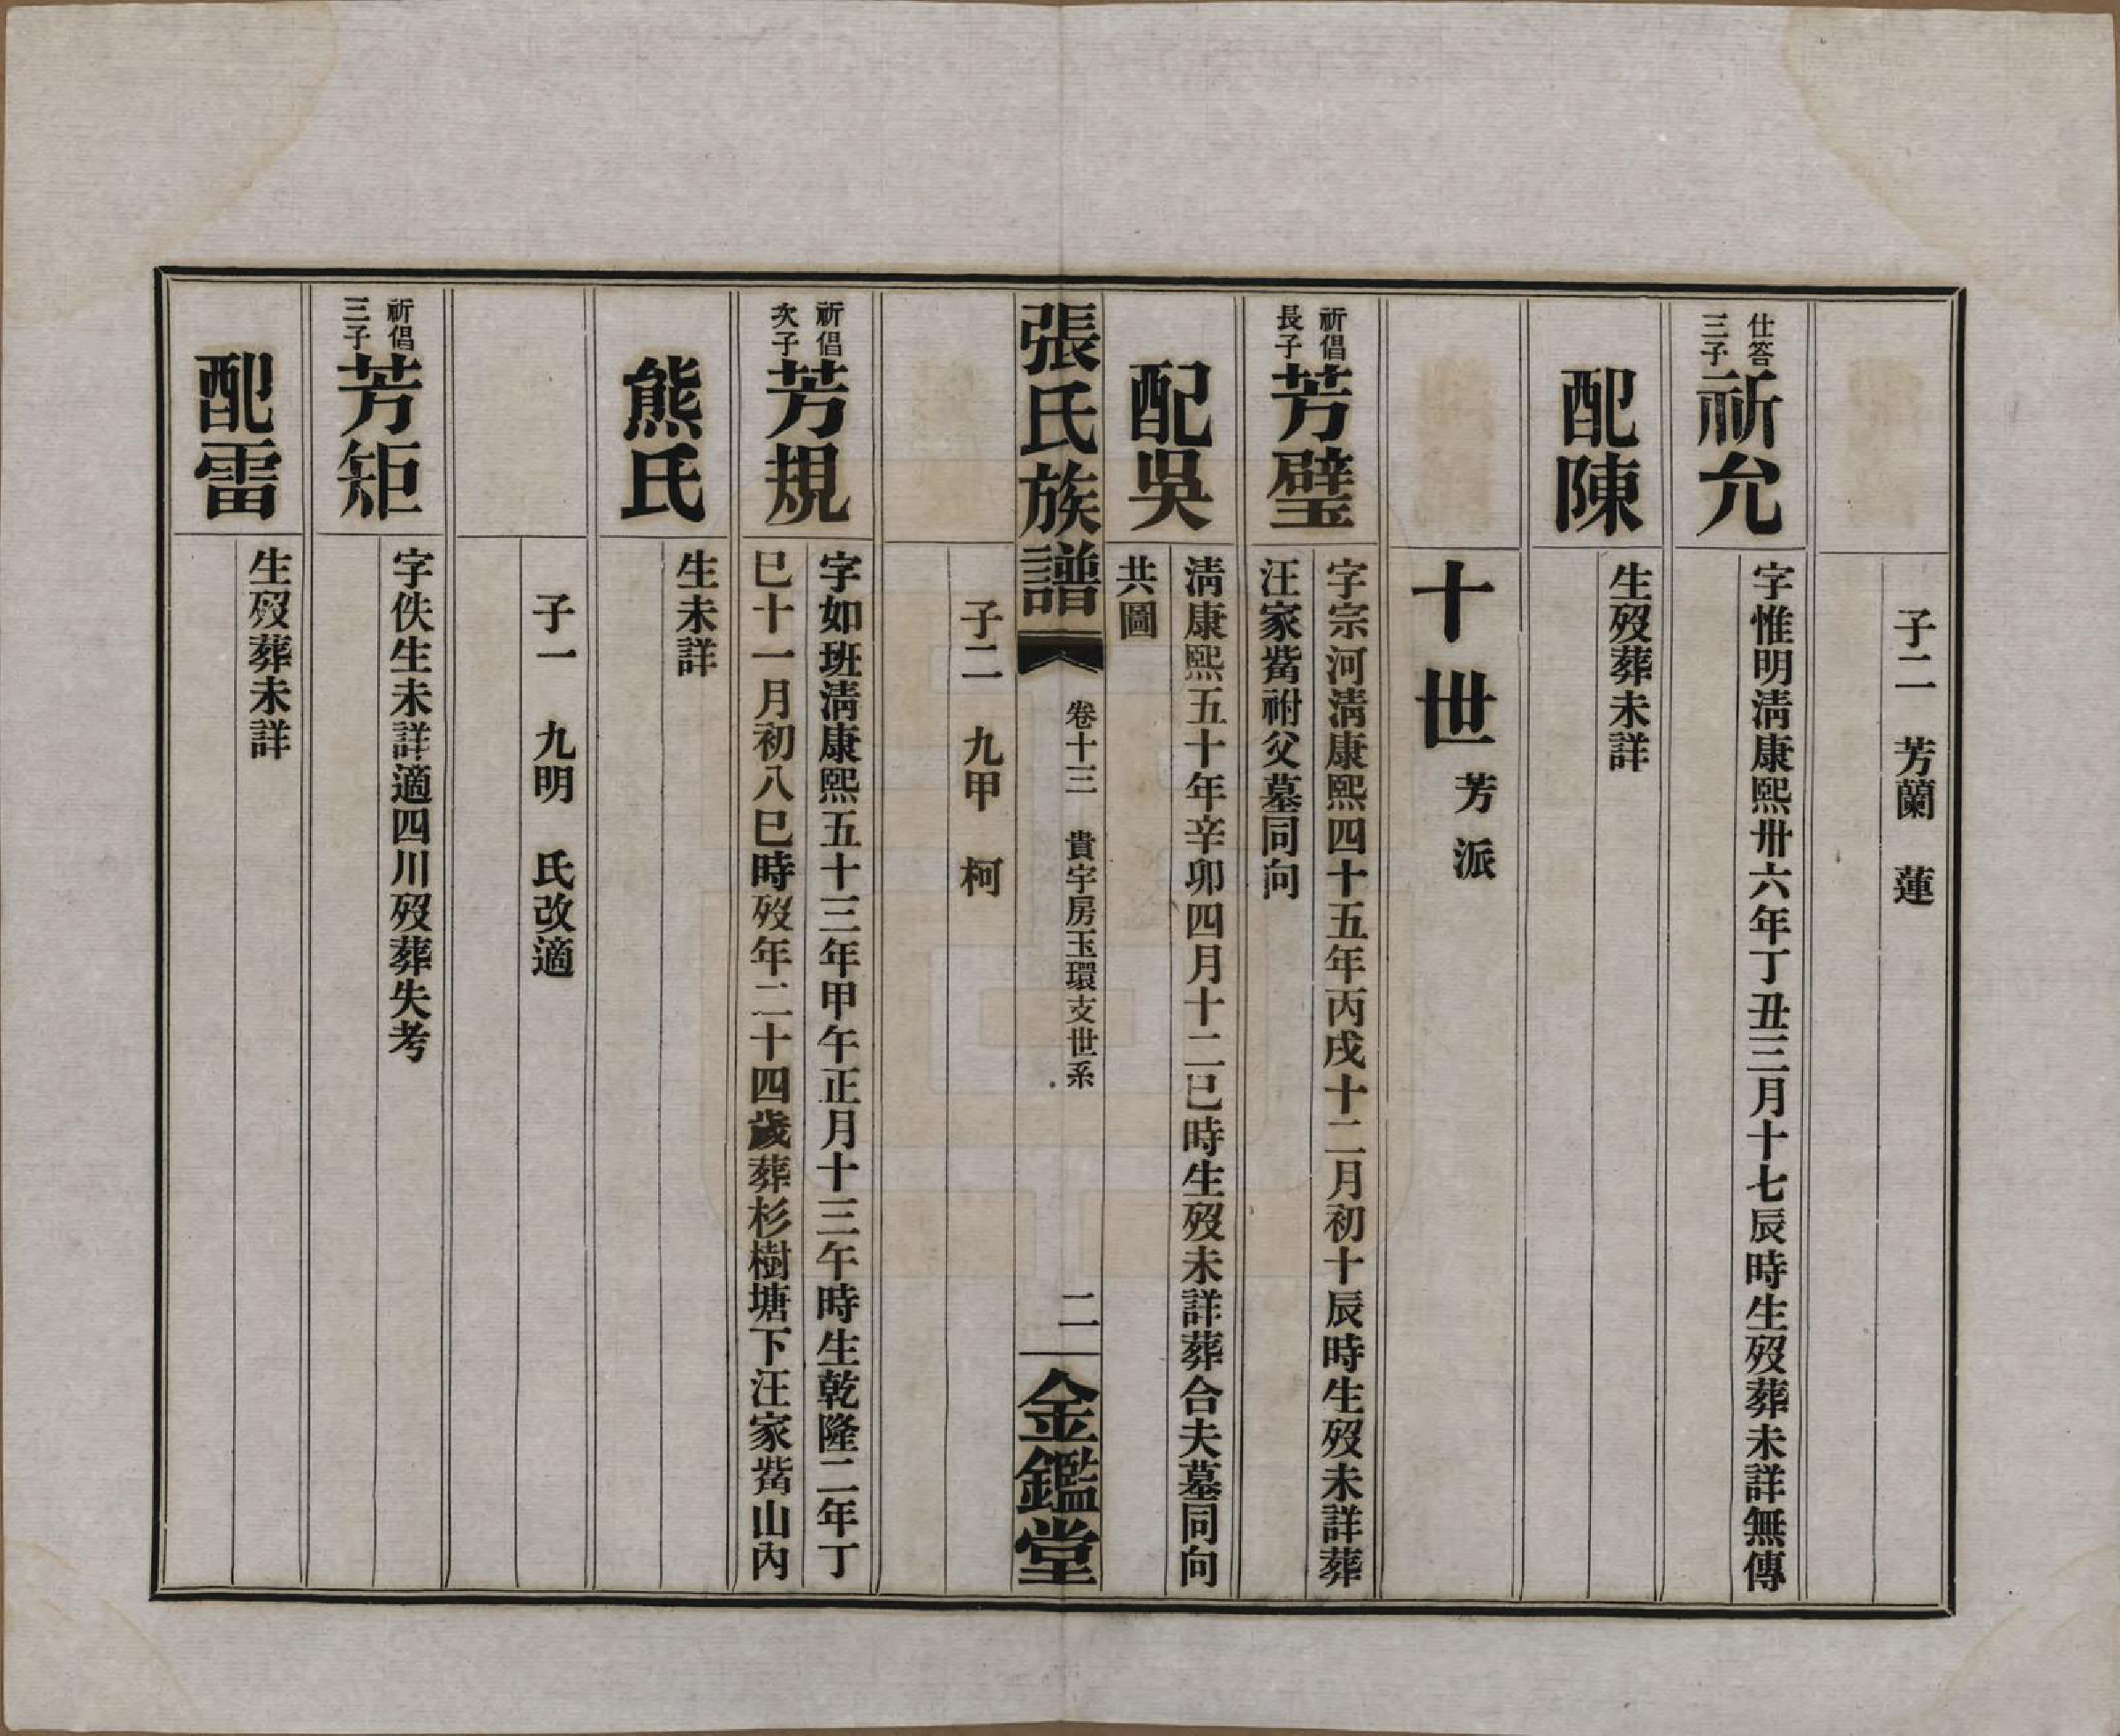 子二　芳蘭　蓮
仕答三子
祈允
字惟明清康熙卅六年丁丑三月十七辰時生歿葬未詳無傳
配陳
生歿葬未詳
十世芳派
祈倡長子
芳璧
字宗河清康熙四十五年丙戌十二月初十辰時生歿未詳葬
汪家喾祔父墓同向
配吳
清康熙五十年辛卯四月十二巳時生歿未詳葬合夫墓同向
共圖
張氏族譜
卷十三　貴宇房玉環支世系
二
金鑑堂
子二　九甲　柯
祈倡次子
芳規
字如班清康熙五十三年甲午正月十三午時生乾隆二年丁
巳十一月初八巳時歿年二十四歲葬杉樹塘下汪家喾山內
熊氏
生未詳
子一　九明　氏改適
祈倡三子
芳矩
字佚生未詳適四川歿葬失考
配雷
生歿葬未詳